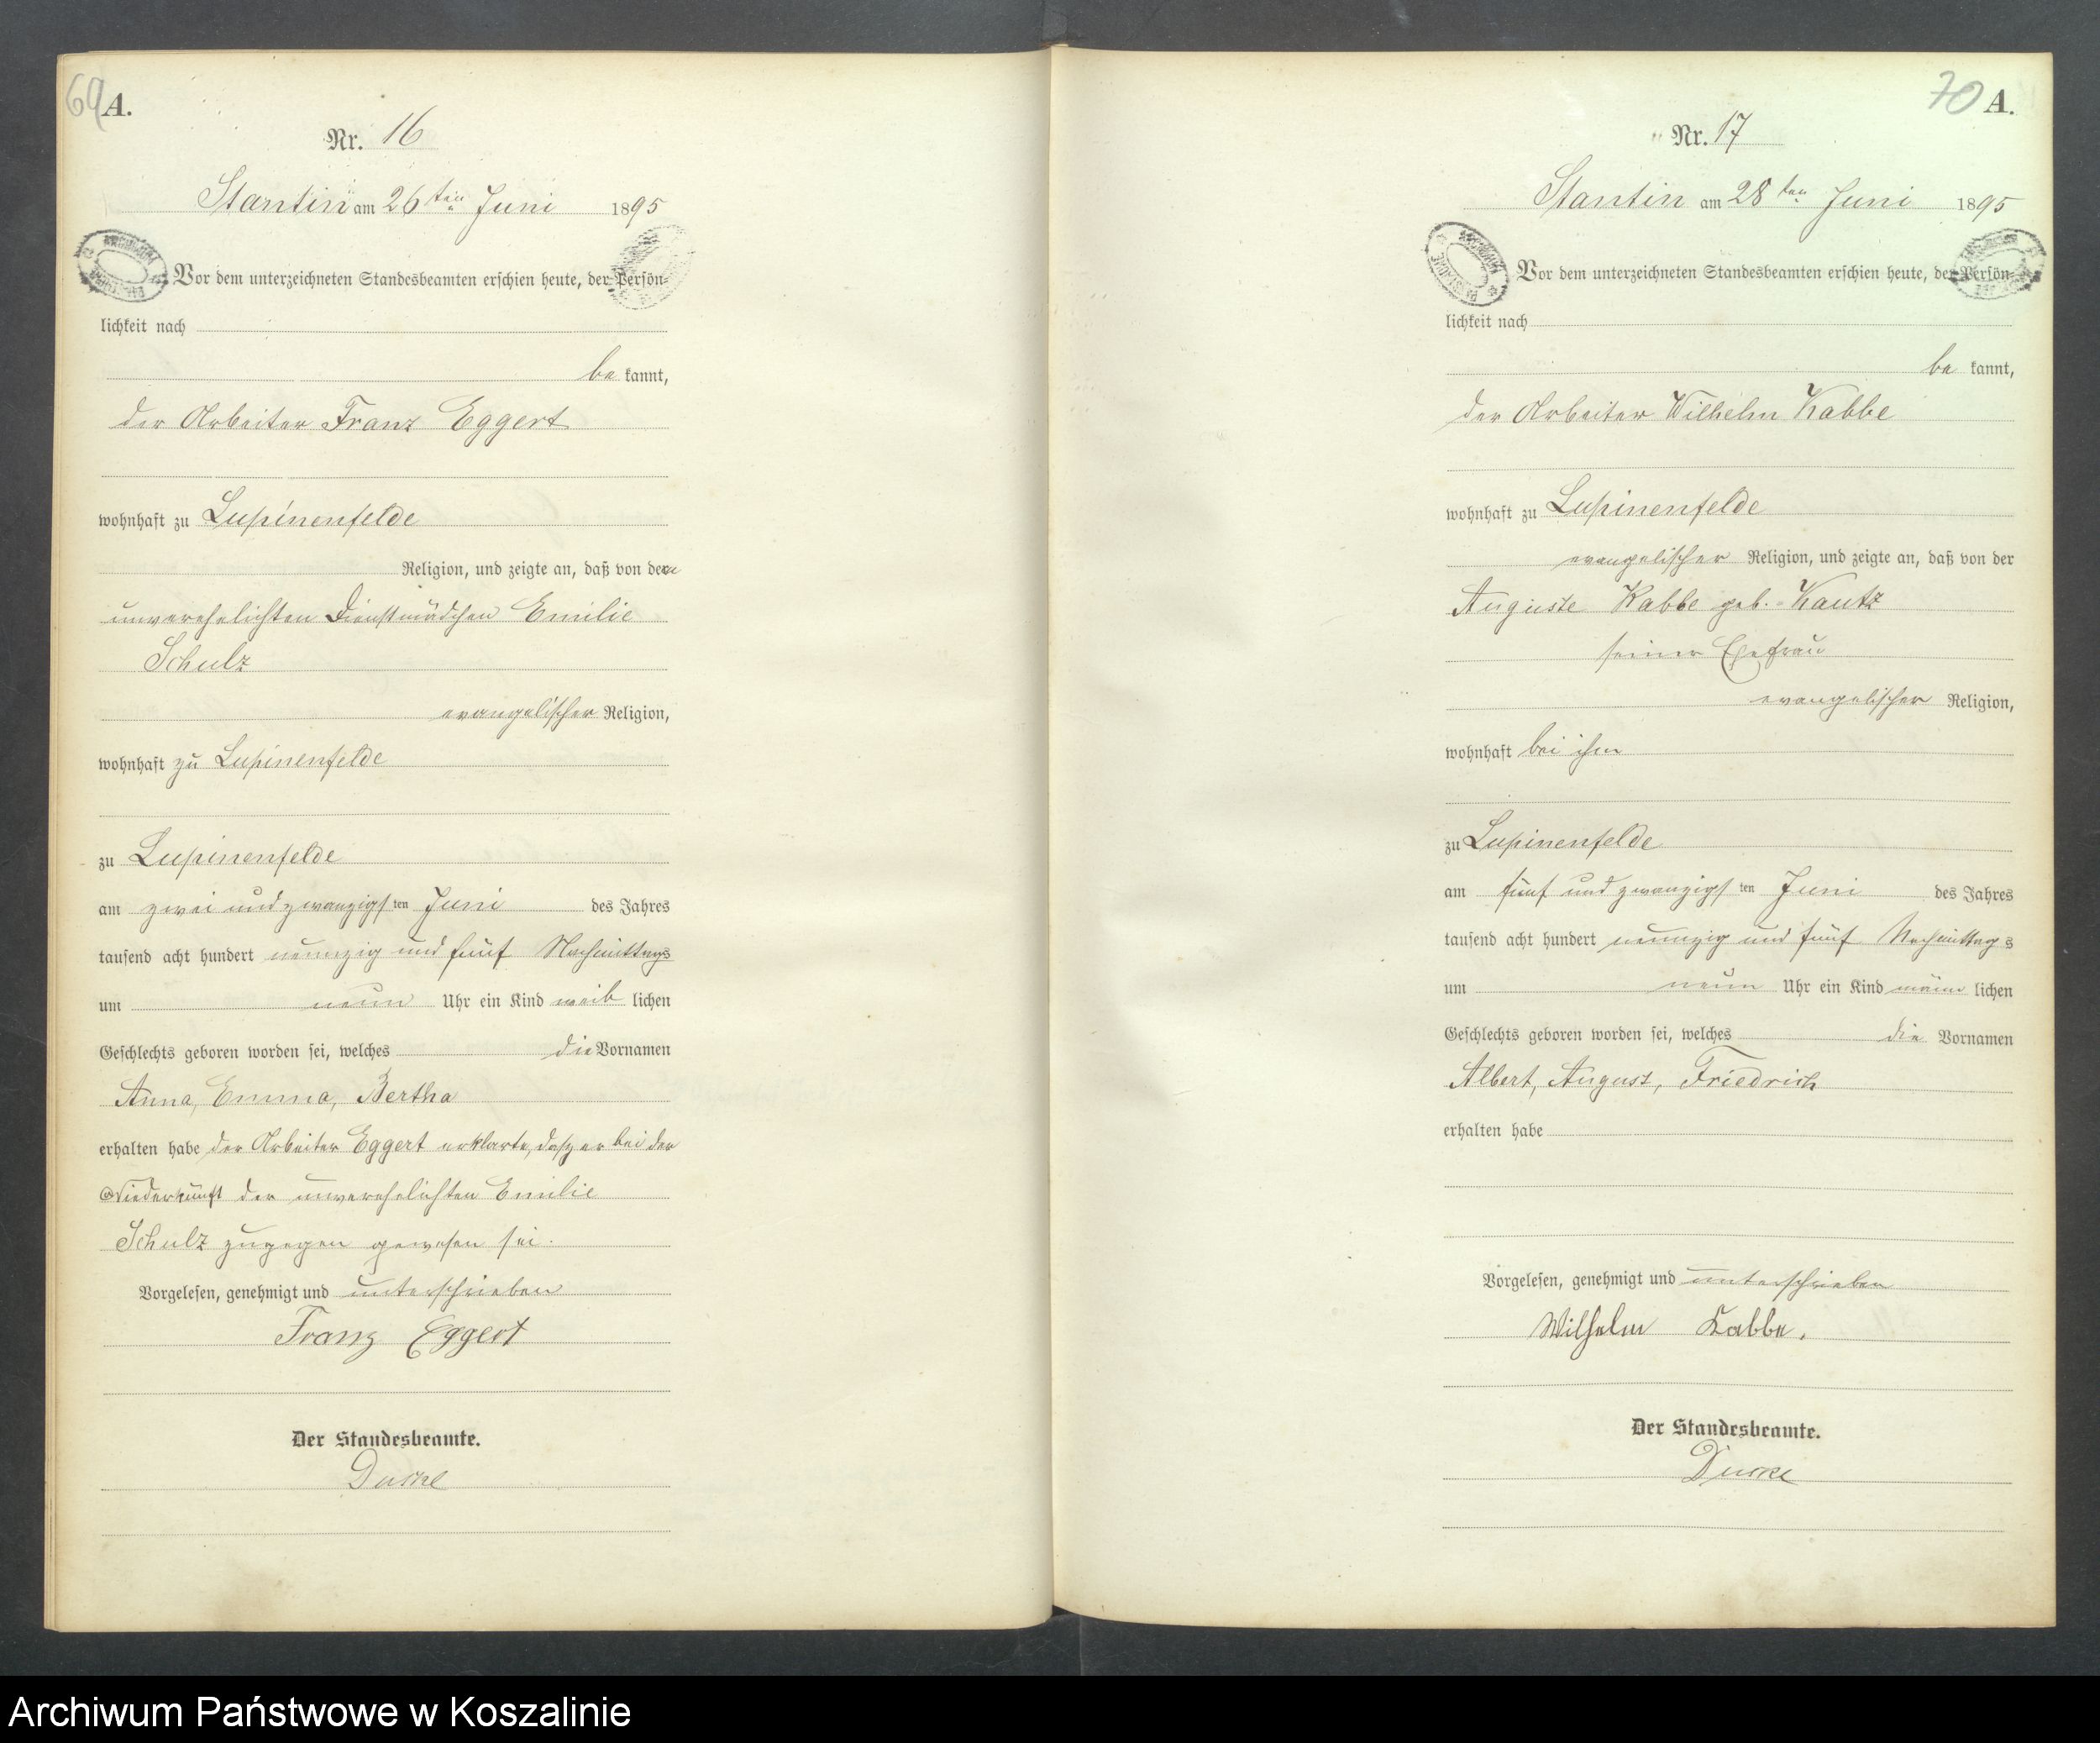 69 A.
Nr. 16
Stantin am 26ten Juni 1895
Vor dem unterzeichneten Standesbeamten erschien heute, der Persön-
lichkeit nach
be kannt,
der Arbeiter Franz Eggert
wohnhaft zu Lupinenfelde
Religion, und zeigte an, daß von dem
unverehelichten Dienstmädchen Emilie
Schulz
evangelischer Religion,
wohnhaft zu Lupinenfelde
zu Lupinenfelde
am zwei und zwanzigsten Juni des Jahres
tausend acht hundert neunzig und fünf Nachmittags
um neun Uhr ein Kind weib lichen
Geschlechts geboren worden sei, welches die Vornamen
Anna, Emma, Bertha
erhalten habe der Arbeiter Eggert erklarte, daß er bei der
Niederkunft der unverehelichten Emilie
Schulz zugegen gewesen sei.
Vorgelesen, genehmigt und unterschrieben
Franz Eggert
Der Standesbeamte.
70 A.
Nr. 17
Stantin am 28ten Juni 1895
Vor dem unterzeichneten Standesbeamten erschien heute, der Persön-
lichkeit nach
be kannt,
der Arbeiter Wilhelm Kabbe
wohnhaft zu Lupinenfelde
evangelischer Religion, und zeigte an, daß von der
Auguste Kabbe geb. Kautz
seiner Ehefrau
evangelischer Religion,
wohnhaft bei ihm
zu Lupinenfelde
am fünf und zwanzigsten Juni des Jahres
tausend acht hundert neunzig und fünf Nachmittags
um neun Uhr ein Kind männ lichen
Geschlechts geboren worden sei, welches die Vornamen
Albert, August, Friedrich
erhalten habe
Vorgelesen, genehmigt und unterschrieben
Wilhelm Kabbe.
Der Standesbeamte.
Archiwum Państwowe w Koszalinie